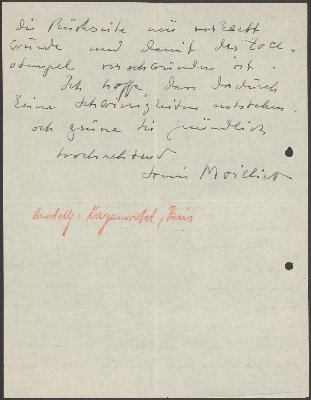 die Rückseite neu
und damit der Zoll-
stempel verschwunden ist.
Ich hoffe, dass dadurch
keine Schwierigkeiten entstehen.
ich grüsse Sie freundlich
hochachtend
Moilliet
Paris